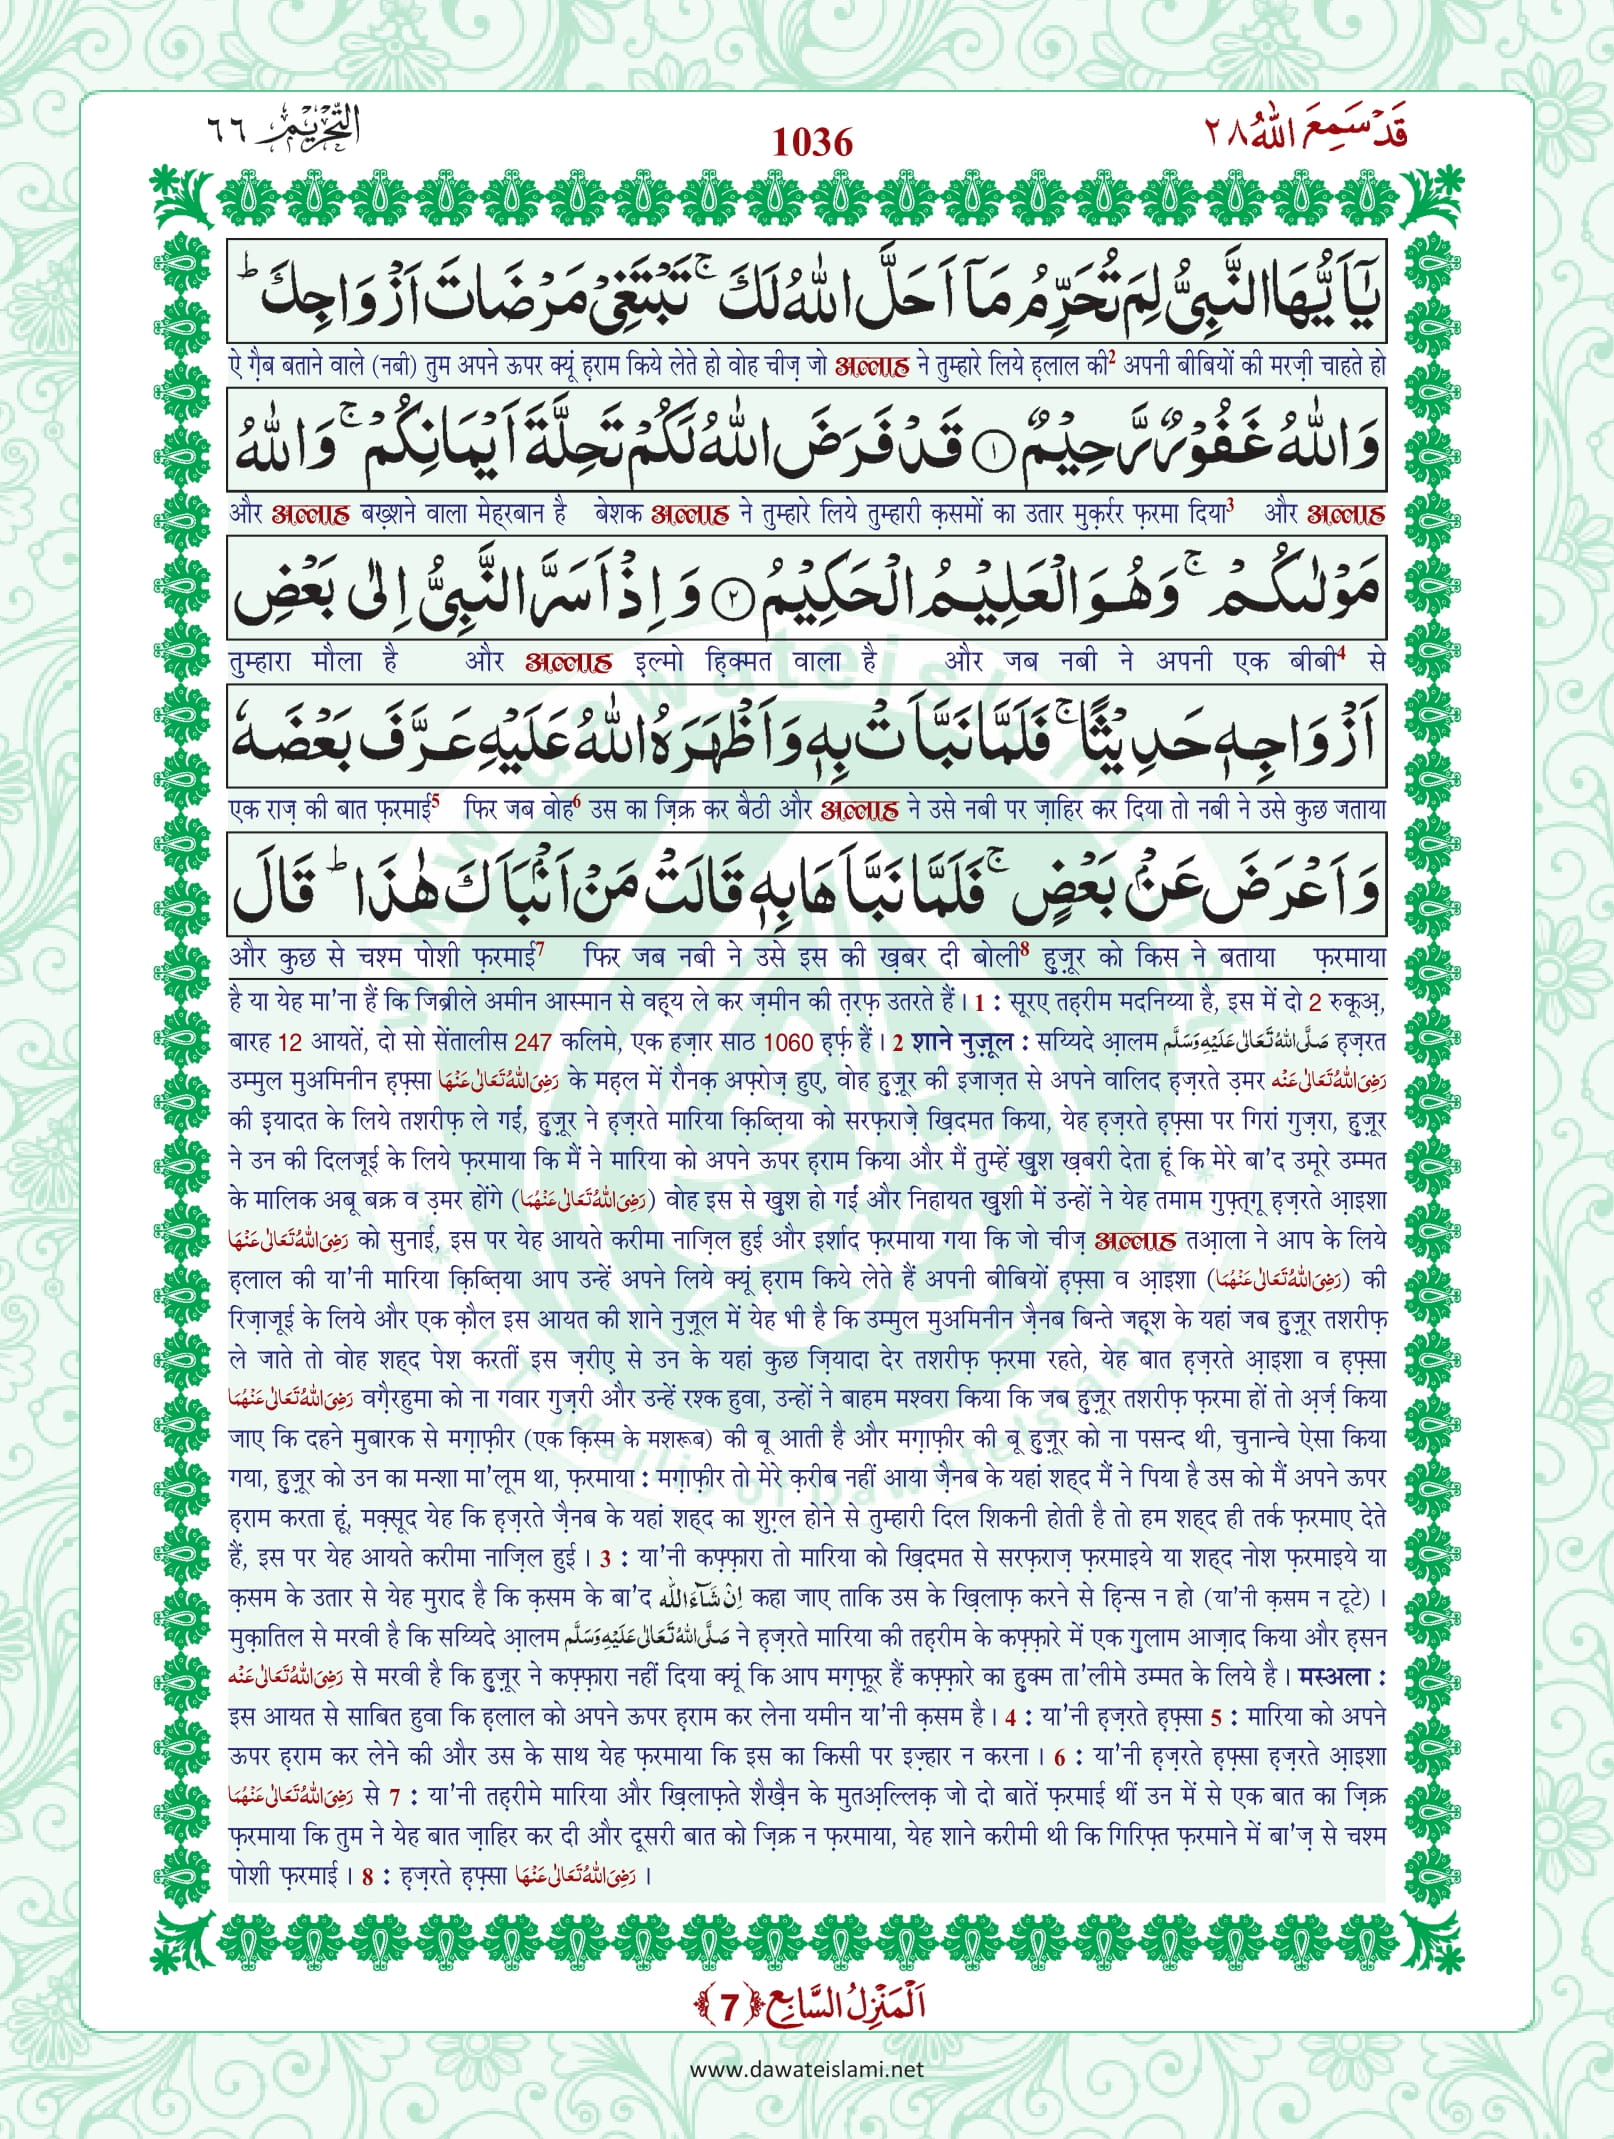 التحریم ٦٦
1036
قد سمع الله ٢٨
يٰۤاَيُّهَا النَّبِيُّ لِمَ تُحَرِّمُ مَاۤ اَحَلَّ اللّٰهُ لَكَ ۚ تَبْتَغِيْ مَرْضَاتَ اَزْوَاجِكَ ؕ
ऐ ग़ैब बताने वाले (नबी) तुम अपने ऊपर क्यूं ह़राम किये लेते हो वोह चीज़ जो अल्लाह ने तुम्हारे लिये ह़लाल की2 अपनी बीबियों की मरज़ी चाहते हो
وَ اللّٰهُ غَفُوْرٌ رَّحِيْمٌ ﴿١﴾ قَدْ فَرَضَ اللّٰهُ لَكُمْ تَحِلَّةَ اَيْمَانِكُمْ ۚ وَ اللّٰهُ
और अल्लाह बख़्शने वाला मेह्‌रबान है बेशक अल्लाह ने तुम्हारे लिये तुम्हारी क़समों का उतार मुक़र्रर फ़रमा दिया3 और अल्लाह
مَوْلٰىكُمْ ۚ وَ هُوَ الْعَلِيْمُ الْحَكِيْمُ ﴿٢﴾ وَ اِذْ اَسَرَّ النَّبِيُّ اِلٰى بَعْضِ
तुम्हारा मौला है और अल्लाह इल्मो ह़िक्मत वाला है और जब नबी ने अपनी एक बीबी4 से
اَزْوَاجِهٖ حَدِيْثًا ۚ فَلَمَّا نَبَّاَتْ بِهٖ وَ اَظْهَرَهُ اللّٰهُ عَلَيْهِ عَرَّفَ بَعْضَهٗ
एक राज़ की बात फ़रमाई5 फिर जब वोह6 उस का ज़िक्र कर बैठी और अल्लाह ने उसे नबी पर ज़ाहिर कर दिया तो नबी ने उसे कुछ जताया
وَ اَعْرَضَ عَنْۢ بَعْضٍ ۚ فَلَمَّا نَبَّاَهَا بِهٖ قَالَتْ مَنْ اَنْۢبَاَكَ هٰذَا ؕ قَالَ
और कुछ से चश्म पोशी फ़रमाई7 फिर जब नबी ने उसे इस की ख़बर दी बोली8 हुज़ूर को किस ने बताया फ़रमाया
है या येह मा'ना हैं कि जिब्रीले अमीन आस्मान से वह़्‌य ले कर ज़मीन की त़रफ़ उतरते हैं। 1 : सूरए तह़रीम मदनिय्या है, इस में दो 2 रुकूअ़,
बारह 12 आयतें, दो सो सेंतालीस 247 कलिमे, एक हज़ार साठ 1060 ह़र्फ़ हैं। 2 शाने नुज़ूल : सय्यिदे आ़लम صَلَّی اللّٰهُ تَعَالٰی عَلَیْهِ وَسَلَّم ह़ज़रत
उम्मुल मुअमिनीन ह़फ़्सा رَضِیَ اللّٰهُ تَعَالٰی عَنْهَا के मह़ल में रौनक़ अफ़्रोज़ हुए, वोह हुज़ूर की इजाज़त से अपने वालिद ह़ज़रते उ़मर رَضِیَ اللّٰهُ تَعَالٰی عَنْه
की इ़यादत के लिये तशरीफ़ ले गईं, हुज़ूर ने ह़ज़रते मारिया क़िब्त़िया को सरफ़राज़े ख़िदमत किया, येह ह़ज़रते ह़फ़्सा पर गिरां गुज़रा, हुज़ूर
ने उन की दिलजूई के लिये फ़रमाया कि मैं ने मारिया को अपने ऊपर ह़राम किया और मैं तुम्हें ख़ुश ख़बरी देता हूं कि मेरे बा'द उमूरे उम्मत
के मालिक अबू बक्र व उ़मर होंगे (رَضِیَ اللّٰهُ تَعَالٰی عَنْهُمَا) वोह इस से ख़ुश हो गईं और निहायत ख़ुशी में उन्हों ने येह तमाम गुफ़्त्गू ह़ज़रते आ़इशा
رَضِیَ اللّٰهُ تَعَالٰی عَنْهَا को सुनाई, इस पर येह आयते करीमा नाज़िल हुई और इर्शाद फ़रमाया गया कि जो चीज़ अल्लाह तआ़ला ने आप के लिये
ह़लाल की या'नी मारिया क़िब्त़िया आप उन्हें अपने लिये क्यूं ह़राम किये लेते हैं अपनी बीबियों ह़फ़्सा व आ़इशा (رَضِیَ اللّٰهُ تَعَالٰی عَنْهُمَا) की
रिज़ाजूई के लिये और एक क़ौल इस आयत की शाने नुज़ूल में येह भी है कि उम्मुल मुअमिनीन ज़ैनब बिन्ते जह़्श के यहां जब हुज़ूर तशरीफ़
ले जाते तो वोह शह्‌द पेश करतीं इस ज़रीए से उन के यहां कुछ ज़ियादा देर तशरीफ़ फ़रमा रहते, येह बात ह़ज़रते आ़इशा व ह़फ़्सा
رَضِیَ اللّٰهُ تَعَالٰی عَنْهُمَا वग़ैरहुमा को ना गवार गुज़री और उन्हें रश्क हुवा, उन्हों ने बाहम मश्वरा किया कि जब हुज़ूर तशरीफ़ फ़रमा हों तो अ़र्ज़ किया
जाए कि दहने मुबारक से मग़ाफ़ीर (एक क़िस्म के मशरूब) की बू आती है और मग़ाफ़ीर की बू हुज़ूर को ना पसन्द थी, चुनान्चे ऐसा किया
गया, हुज़ूर को उन का मन्शा मा'लूम था, फ़रमाया : मग़ाफ़ीर तो मेरे क़रीब नहीं आया ज़ैनब के यहां शह्‌द मैं ने पिया है उस को मैं अपने ऊपर
ह़राम करता हूं, मक़्सूद येह कि ह़ज़रते ज़ैनब के यहां शह्‌द का शुग़्ल होने से तुम्हारी दिल शिकनी होती है तो हम शह्‌द ही तर्क फ़रमाए देते
हैं, इस पर येह आयते करीमा नाज़िल हुई। 3 : या'नी कफ़्फ़ारा तो मारिया को ख़िदमत से सरफ़राज़ फ़रमाइये या शह्‌द नोश फ़रमाइये या
क़सम के उतार से येह मुराद है कि क़सम के बा'द اِنْ شَآءَ اللّٰه कहा जाए ताकि उस के ख़िलाफ़ करने से ह़िन्स न हो (या'नी क़सम न टूटे)।
मुक़ातिल से मरवी है कि सय्यिदे आ़लम صَلَّی اللّٰهُ تَعَالٰی عَلَیْهِ وَسَلَّم ने ह़ज़रते मारिया की तह़रीम के कफ़्फ़ारे में एक ग़ुलाम आज़ाद किया और ह़सन
رَضِیَ اللّٰهُ تَعَالٰی عَنْه से मरवी है कि हुज़ूर ने कफ़्फ़ारा नहीं दिया क्यूं कि आप मग़फ़ूर हैं कफ़्फ़ारे का हुक्म ता'लीमे उम्मत के लिये है। मस्अला :
इस आयत से साबित हुवा कि ह़लाल को अपने ऊपर ह़राम कर लेना यमीन या'नी क़सम है। 4 : या'नी ह़ज़रते ह़फ़्सा 5 : मारिया को अपने
ऊपर ह़राम कर लेने की और उस के साथ येह फ़रमाया कि इस का किसी पर इज़्हार न करना। 6 : या'नी ह़ज़रते ह़फ़्सा ह़ज़रते आ़इशा
رَضِیَ اللّٰهُ تَعَالٰی عَنْهُمَا से 7 : या'नी तह़रीमे मारिया और ख़िलाफ़ते शैख़ैन के मुतअ़ल्लिक़ जो दो बातें फ़रमाई थीं उन में से एक बात का ज़िक्र
फ़रमाया कि तुम ने येह बात ज़ाहिर कर दी और दूसरी बात को ज़िक्र न फ़रमाया, येह शाने करीमी थी कि गिरिफ़्त फ़रमाने में बा'ज़ से चश्म
पोशी फ़रमाई। 8 : ह़ज़रते ह़फ़्सा رَضِیَ اللّٰهُ تَعَالٰی عَنْهَا।
اَلْمَنْزِلُ السَّابِع ﴿7﴾
www.dawateislami.net